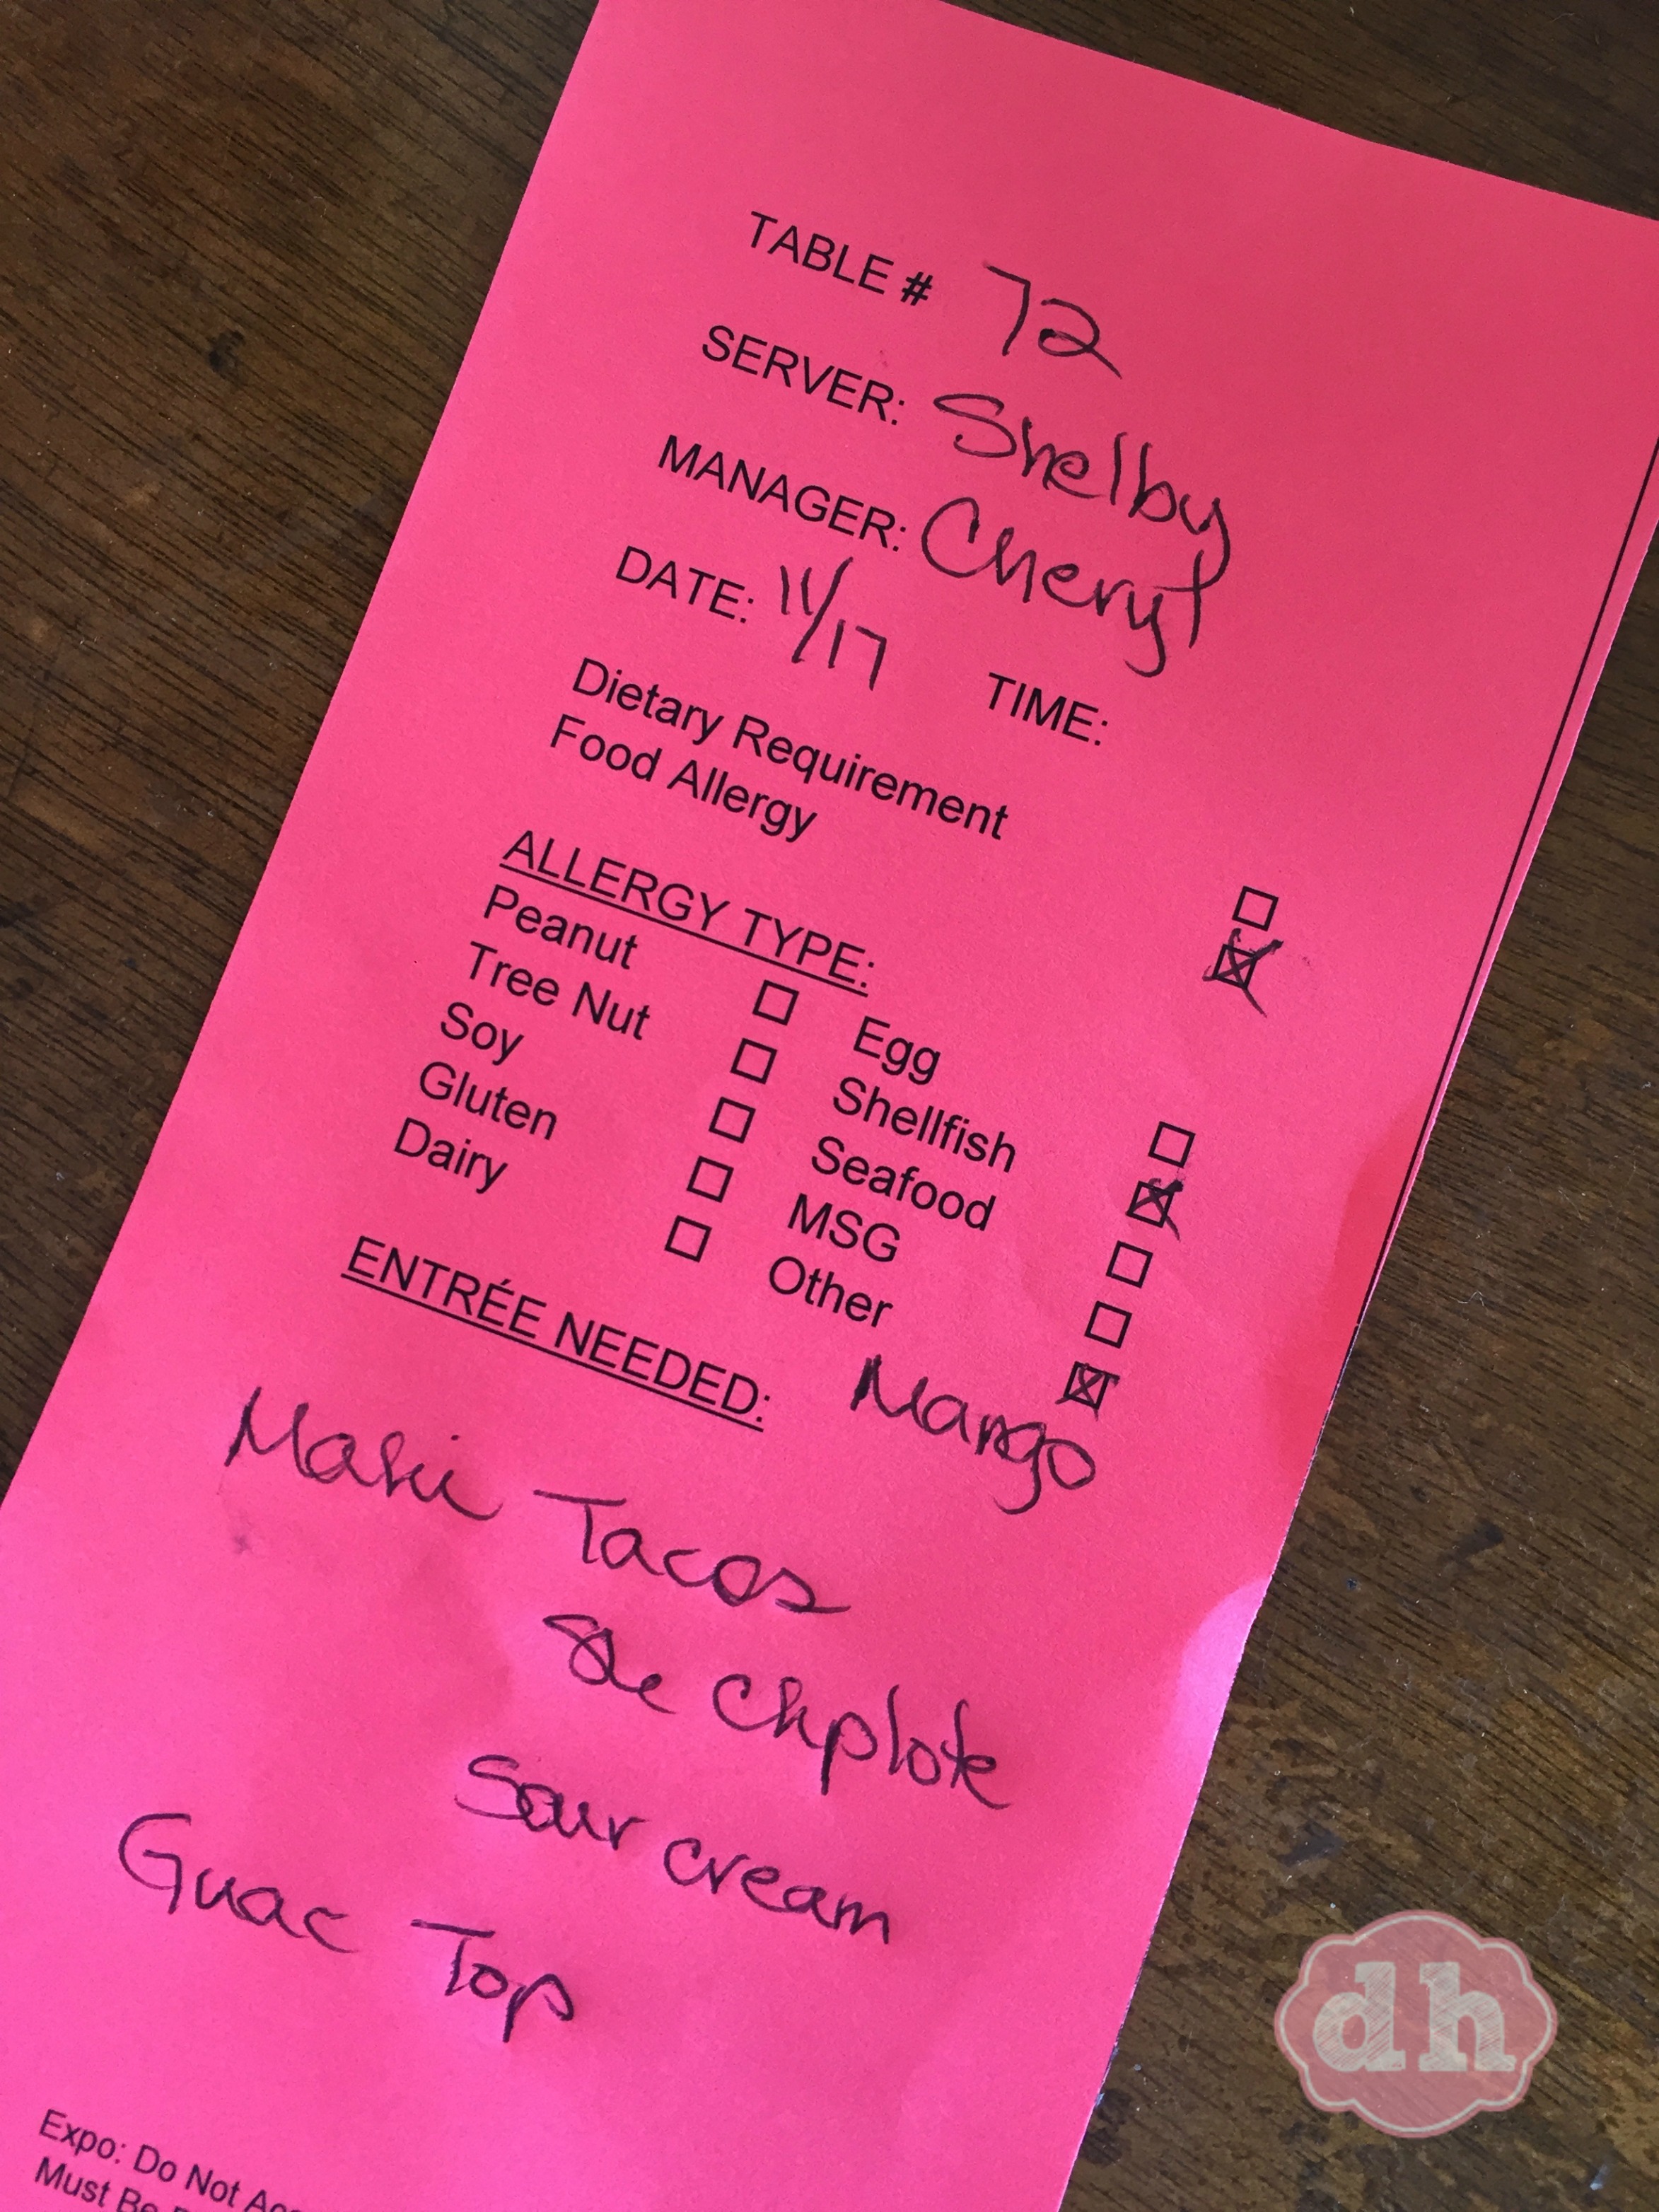 TABLE # 72
SERVER: Shelby
MANAGER: Cheryl
DATE: 11/17 TIME:
Dietary Requirement ☐
Food Allergy ☒
ALLERGY TYPE:
Peanut ☐ Egg ☐
Tree Nut ☐ Shellfish ☒
Soy ☐ Seafood ☐
Gluten ☐ MSG ☐
Dairy ☐ Other ☒
Mango
ENTRÉE NEEDED:
Mahi Tacos
Chplote
Sour cream
Guac Top
Expo: Do Not
Must Be
dh